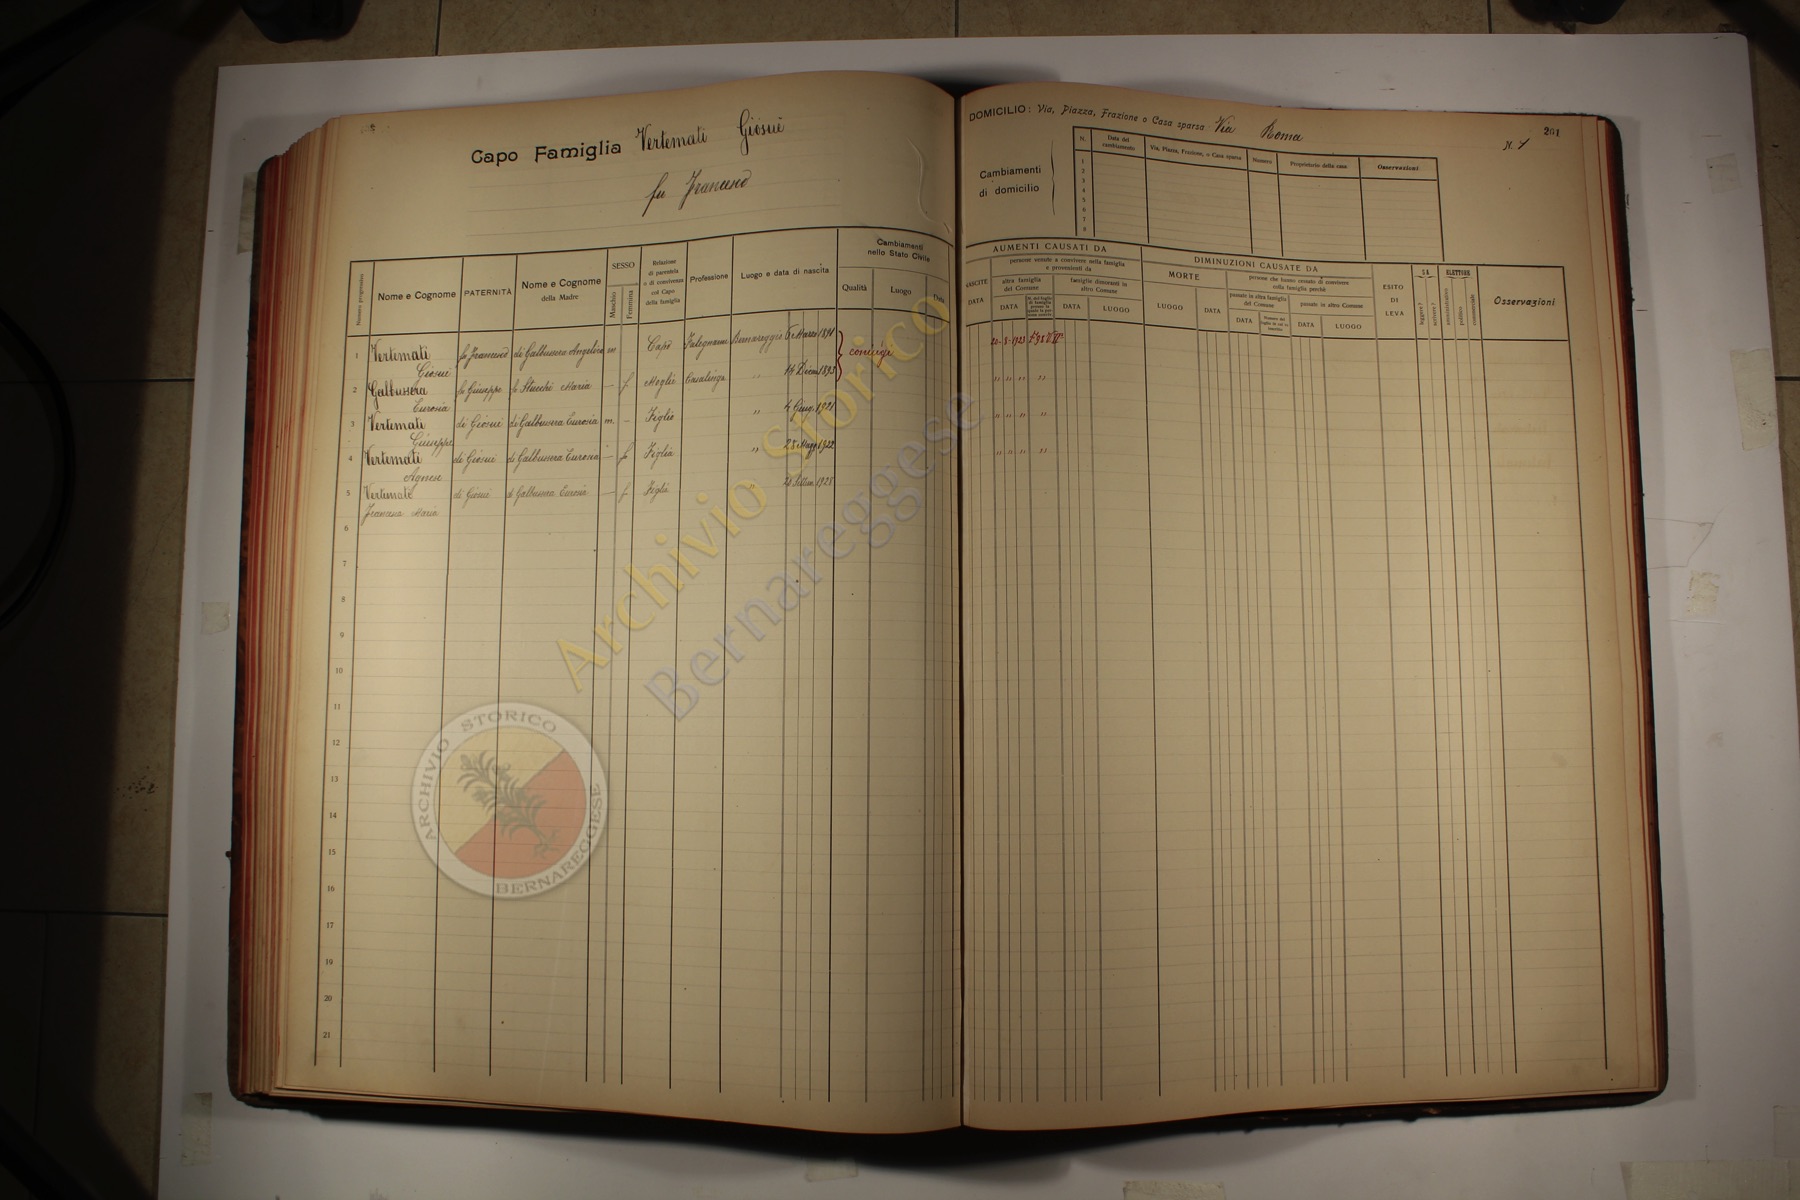 Capo Famiglia Vertemati Giosuè
fu Francesco
Numero progressivo
Nome e Cognome
PATERNITÀ
Nome e Cognome
della Madre
SESSO
Maschio
Femmina
Relazione
di parentela
o di convivenza
col Capo
della famiglia
Professione
Luogo e data di nascita
Cambiamenti
nello Stato Civile
Qualità
Luogo
Data
1 Vertemati fu Francesco di Galbussera Angelica m Capo Falegname Bernareggio 6 Marzo 1891 coniugi
Giosuè
2 Galbussera fu Giuseppe fu Stucchi Maria — f Moglie Casalinga " 14 Dicem 1893
Eurosia
3 Vertemati di Giosuè di Galbussera Eurosia m. — Figlio " 4 Giug. 1921
Giuseppe
4 Vertemati di Giosuè di Galbussera Eurosia — f Figlia " 28 Magg 1922
Agnese
5 Vertemati di Giosuè di Galbussera Eurosia — f Figlia " 24 Settem 1925
Francesca Maria
6
7
8
9
10
11
12
13
14
15
16
17
18
19
20
21
DOMICILIO: Via, Piazza, Frazione o Casa sparsa Via Roma
N. 7
201
Cambiamenti
di domicilio
N.
Data del
cambiamento
Via, Piazza, Frazione, o Casa sparsa
Numero
Proprietario della casa
Osservazioni
1
2
3
4
5
6
7
8
AUMENTI CAUSATI DA
NASCITE
DATA
persone venute a convivere nella famiglia
e provenienti da
altra famiglia
del Comune
famiglie dimoranti in
altro Comune
DATA
DATA
LUOGO
DIMINUZIONI CAUSATE DA
MORTE
LUOGO
DATA
persone che hanno cessato di convivere
colla famiglia perchè
passate in altra famiglia
del Comune
passate in altro Comune
DATA
DATA
LUOGO
ESITO
DI
LEVA
SA
leggere?
scrivere?
ELETTORE
amministrativo
politico
commerciale
Osservazioni
20-3-1923
" " " "
" " " "
Archivio Storico
Bernareggese
ARCHIVIO STORICO
BERNAREGGESE